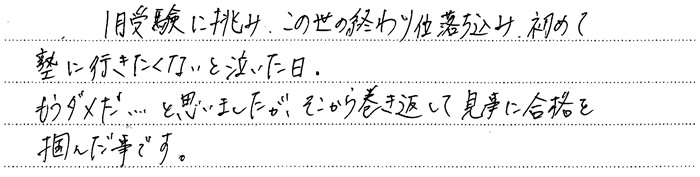 1月受験に挑み、この世の終わり位落ち込み、初めて
塾に行きたくないと泣いた日。
もうダメだ…と思いましたが、そこから巻き返して見事に合格を
掴んだ事です。